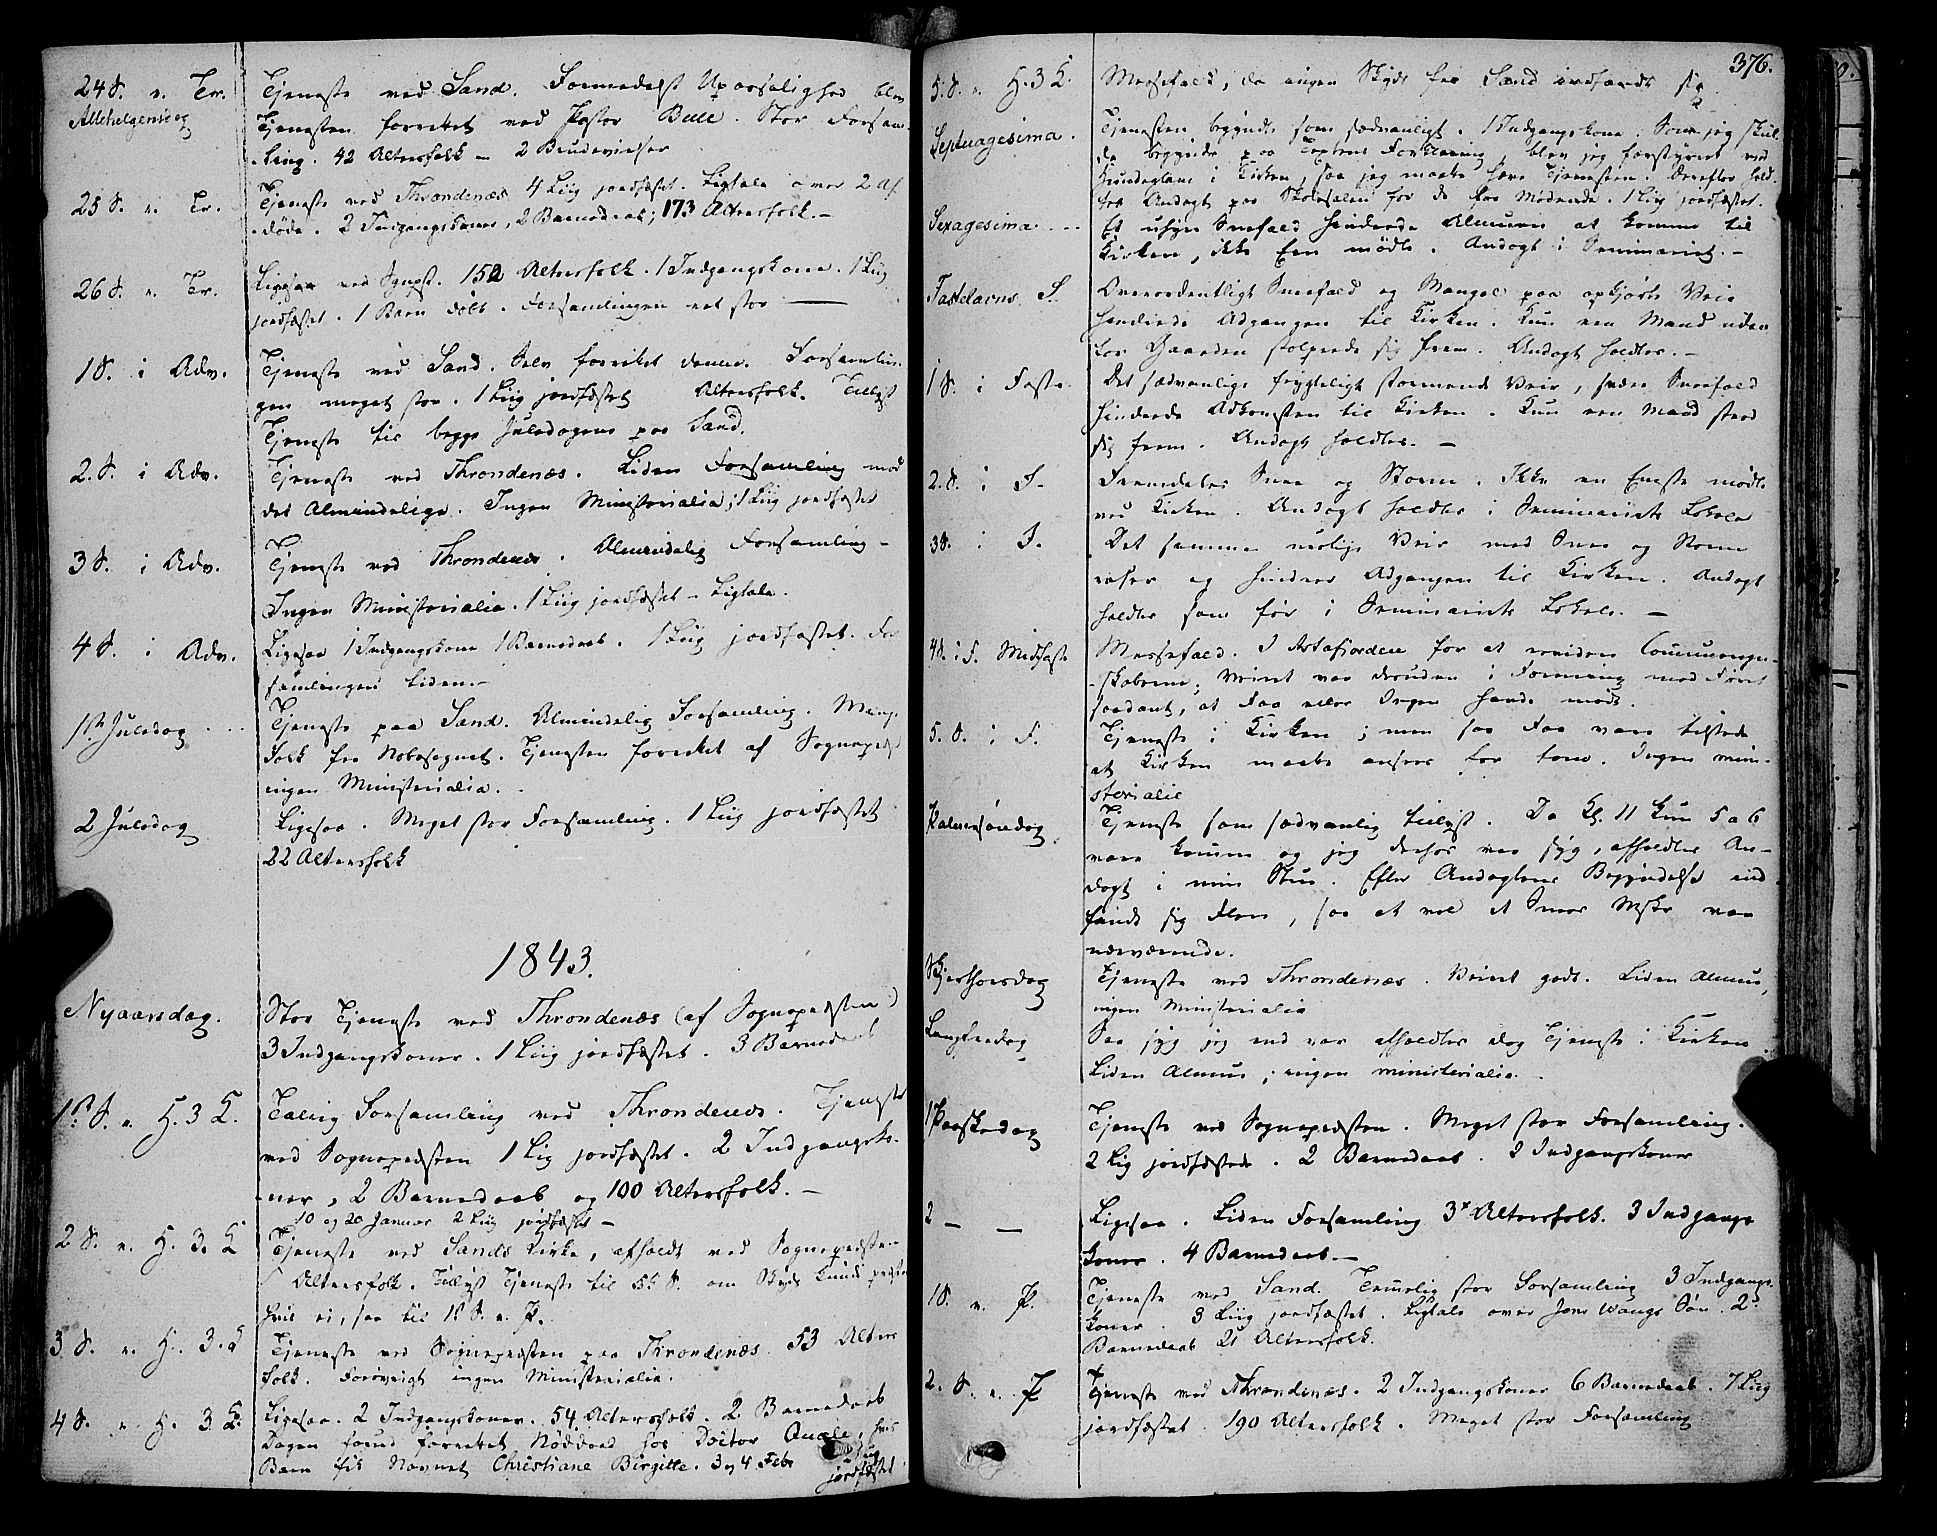 24 S. e. Tr.
Allehelgensdag
Tjeneste ved Sand. Formedelst Upasselighed blev
Tjenesten forrettet ved Pastor Bull. Stor Forsam-
ling. 42 Altersfolk – 2 Brudevielser
25 S. e. Tr.
Tjeneste ved Throndenæs 4 Liig jordfæstet. Ligtale over 2 Af-
døde. 2 Indgangskoner, 2 Barnedaab; 173 Altersfolk. –
26 S. e. Tr.
Ligesaa ved Sgnpst. 152 Altersfolk. 1 Indgangskone. 1 Liig
jordfæstet. 1 Barn døbt. Forsamlingen ret stor
1 S. i Adv.
Tjeneste ved Sand. Selv forrettet denne. Forsamlin-
gen meget stor. 1 Liig jordfæstet Altersfolk. Tillyst
Tjeneste til begge Juledagene paa Sand.
2. S. i Adv.
Tjeneste ved Throndenæs. Liden Forsamling mod
det Almindelige. Ingen Ministerialia; 1 Liig jordfæstet
3 S. i Adv.
Tjeneste ved Throndenæs. Almindelig Forsamling –
Ingen Ministerialia. 1 Liig jordfæstet – Ligtale.
4 S. i Adv.
Ligesaa 1 Indgangskone 1 Barnedaab. 1 Liig jordfæstet. For
samlingen liden. –
1ste Juledag
Tjeneste paa Sand. Almindelig Forsamling. Mange
Folk fra Nabosognet. Tjenesten forrettet af Sognepræst
ingen Ministerialia.
2 Juledag
Ligesaa. Meget stor Forsamling. 1 Liig jordfæstet
22 Altersfolk
1843.
Nyaarsdag.
Stor Tjeneste ved Throndenæs (af Sognepræsten)
3 Indgangskoner. 1 Liig jordfæstet. 3 Barnedaab
1ste S. e. H. 3 K.
Talrig Forsamling ved Throndenæs. Tjeneste
ved Sognepræsten 1 Lig jordfæstet. 2 Indgangsko-
ner, 2 Barnedaab og 100 Altersfolk. –
10 og 20 Januar 2 Liig jordfæstet –
2 S. e. H. 3. K
Tjeneste ved Sands Kirke, afholdt ved Sognepræsten
Altersfolk. Tillyst Tjeneste til 5te S. om Skyds kunde
hvis ei, saa til 1ste S. e. P.
3 S. e. H. 3. K
Tjeneste ved Sognepræsten paa Throndenæs. 53 Alters
folk. Forøvrigt ingen Ministerialia.
4 S. e. H. 3 K.
Ligesaa. 2 Indgangskoner. 54 Altersfolk. 2 Barnedaab
Dagen forud forrettet Nøddaab hos Doctor Quale, hvis
Barn fik Navnet Christiane Birgitte. 3 og 4 Febr
jordfæstet
376.
5. S. e. H. 3 K.
Messefald, da ingen Skyds fra Sand indfandt sig
Septuagesima.
Tjenesten begyndte som sædvanligt. 1 Indgangskone. Som jeg skul-
de begynde paa Textens Forklaring, blev jeg forstyrret ved
Hundeglam i Kirken, saa jeg maatte hæve Tjenesten. Derefter hold-
tes Andagt paa Skolesalen for de faa Mødende. 1 Liig jordfæstet.
Sexagesima
Et uhyre Sneefald hindrede Almuen at komme til
Kirken, ikke Een mødte. Andagt i Seminariet. –
Fastelavns S.
Overordentligt Sneefald og Mangel paa opkjørte Veie
hindrede Adgangen til Kirken. Kun een Mand uden
for Gaarden stolprede sig frem. Andagt holdtes. –
1 S. i Faste.
Det sædvanlige frygteligt stormende Veir, svære Sneefald
hindrede Adkomsten til Kirken. Kun een Mand
sig frem. Andagt holdtes. –
2. S. i F.
Fremdeles Snee og Storm. Ikke en Eneste mødte
ved Kirken. Andagt holdtes i Seminariets Lokale
3 S. i F.
Det samme urolige Veir med Snee og Storm
raser og hindrer Adgangen til Kirken. Andagt
holdtes som før i Seminariets Lokale. –
4 S. i F. Midfaste
Messefald. I Astafjorden for at revidere Communeregn-
skaberne; Veiret var desuden i Forening med Føret
saadant, at Faa eller Ingen havde mødt.
5. S. i F.
Tjeneste i Kirken; men saa Faa vare tilstede
at Kirken maatte ansees for tom. Ingen mini-
sterialie
Palmesøndag
Tjeneste som sædvanlig tillyst. Da Kl. 11 kun 5 a 6
vare komne og jeg derhos var syg, afholdtes An-
dagt i min Stue. Efter Andagtens Begyndelse ind
fandt sig Flere, saa at vel et Snees Msker var
nærværende.
Skjærthorsdag
Tjeneste ved Throndenæs. Veiret godt. Liden Almue,
ingen Ministerialia
Langfredag
Saa syg jeg end var afholdtes dog Tjeneste i Kirken.
Liden Almue; ingen ministerialia. –
1 Paaskedag
Tjeneste ved Sognepræsten. Meget stor Forsamling.
2 Lig jordfæstede. 2 Barnedaab. 2 Indgangskoner
2 — —
Ligesaa. Liden Forsamling 3 Altersfolk. 3 Indgangs
koner. 4 Barnedaab. –
1 S. e. P.
Tjeneste ved Sand. Temmelig stor Forsamling 3 Indgangs-
koner. 3 Liig jordfæstet. Ligtale over Jens Wangs Søn. 2
Barnedaab 21 Altersfolk.
2. S. e. P
Tjeneste ved Throndenæs. 2 Indgangskoner 6 Barnedaab. 7 Liig
jordfæstet. 190 Altersfolk. Meget stor Forsamling